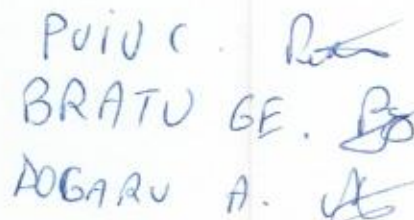 PUIU C.
BRATU GE.
DOGARU A.